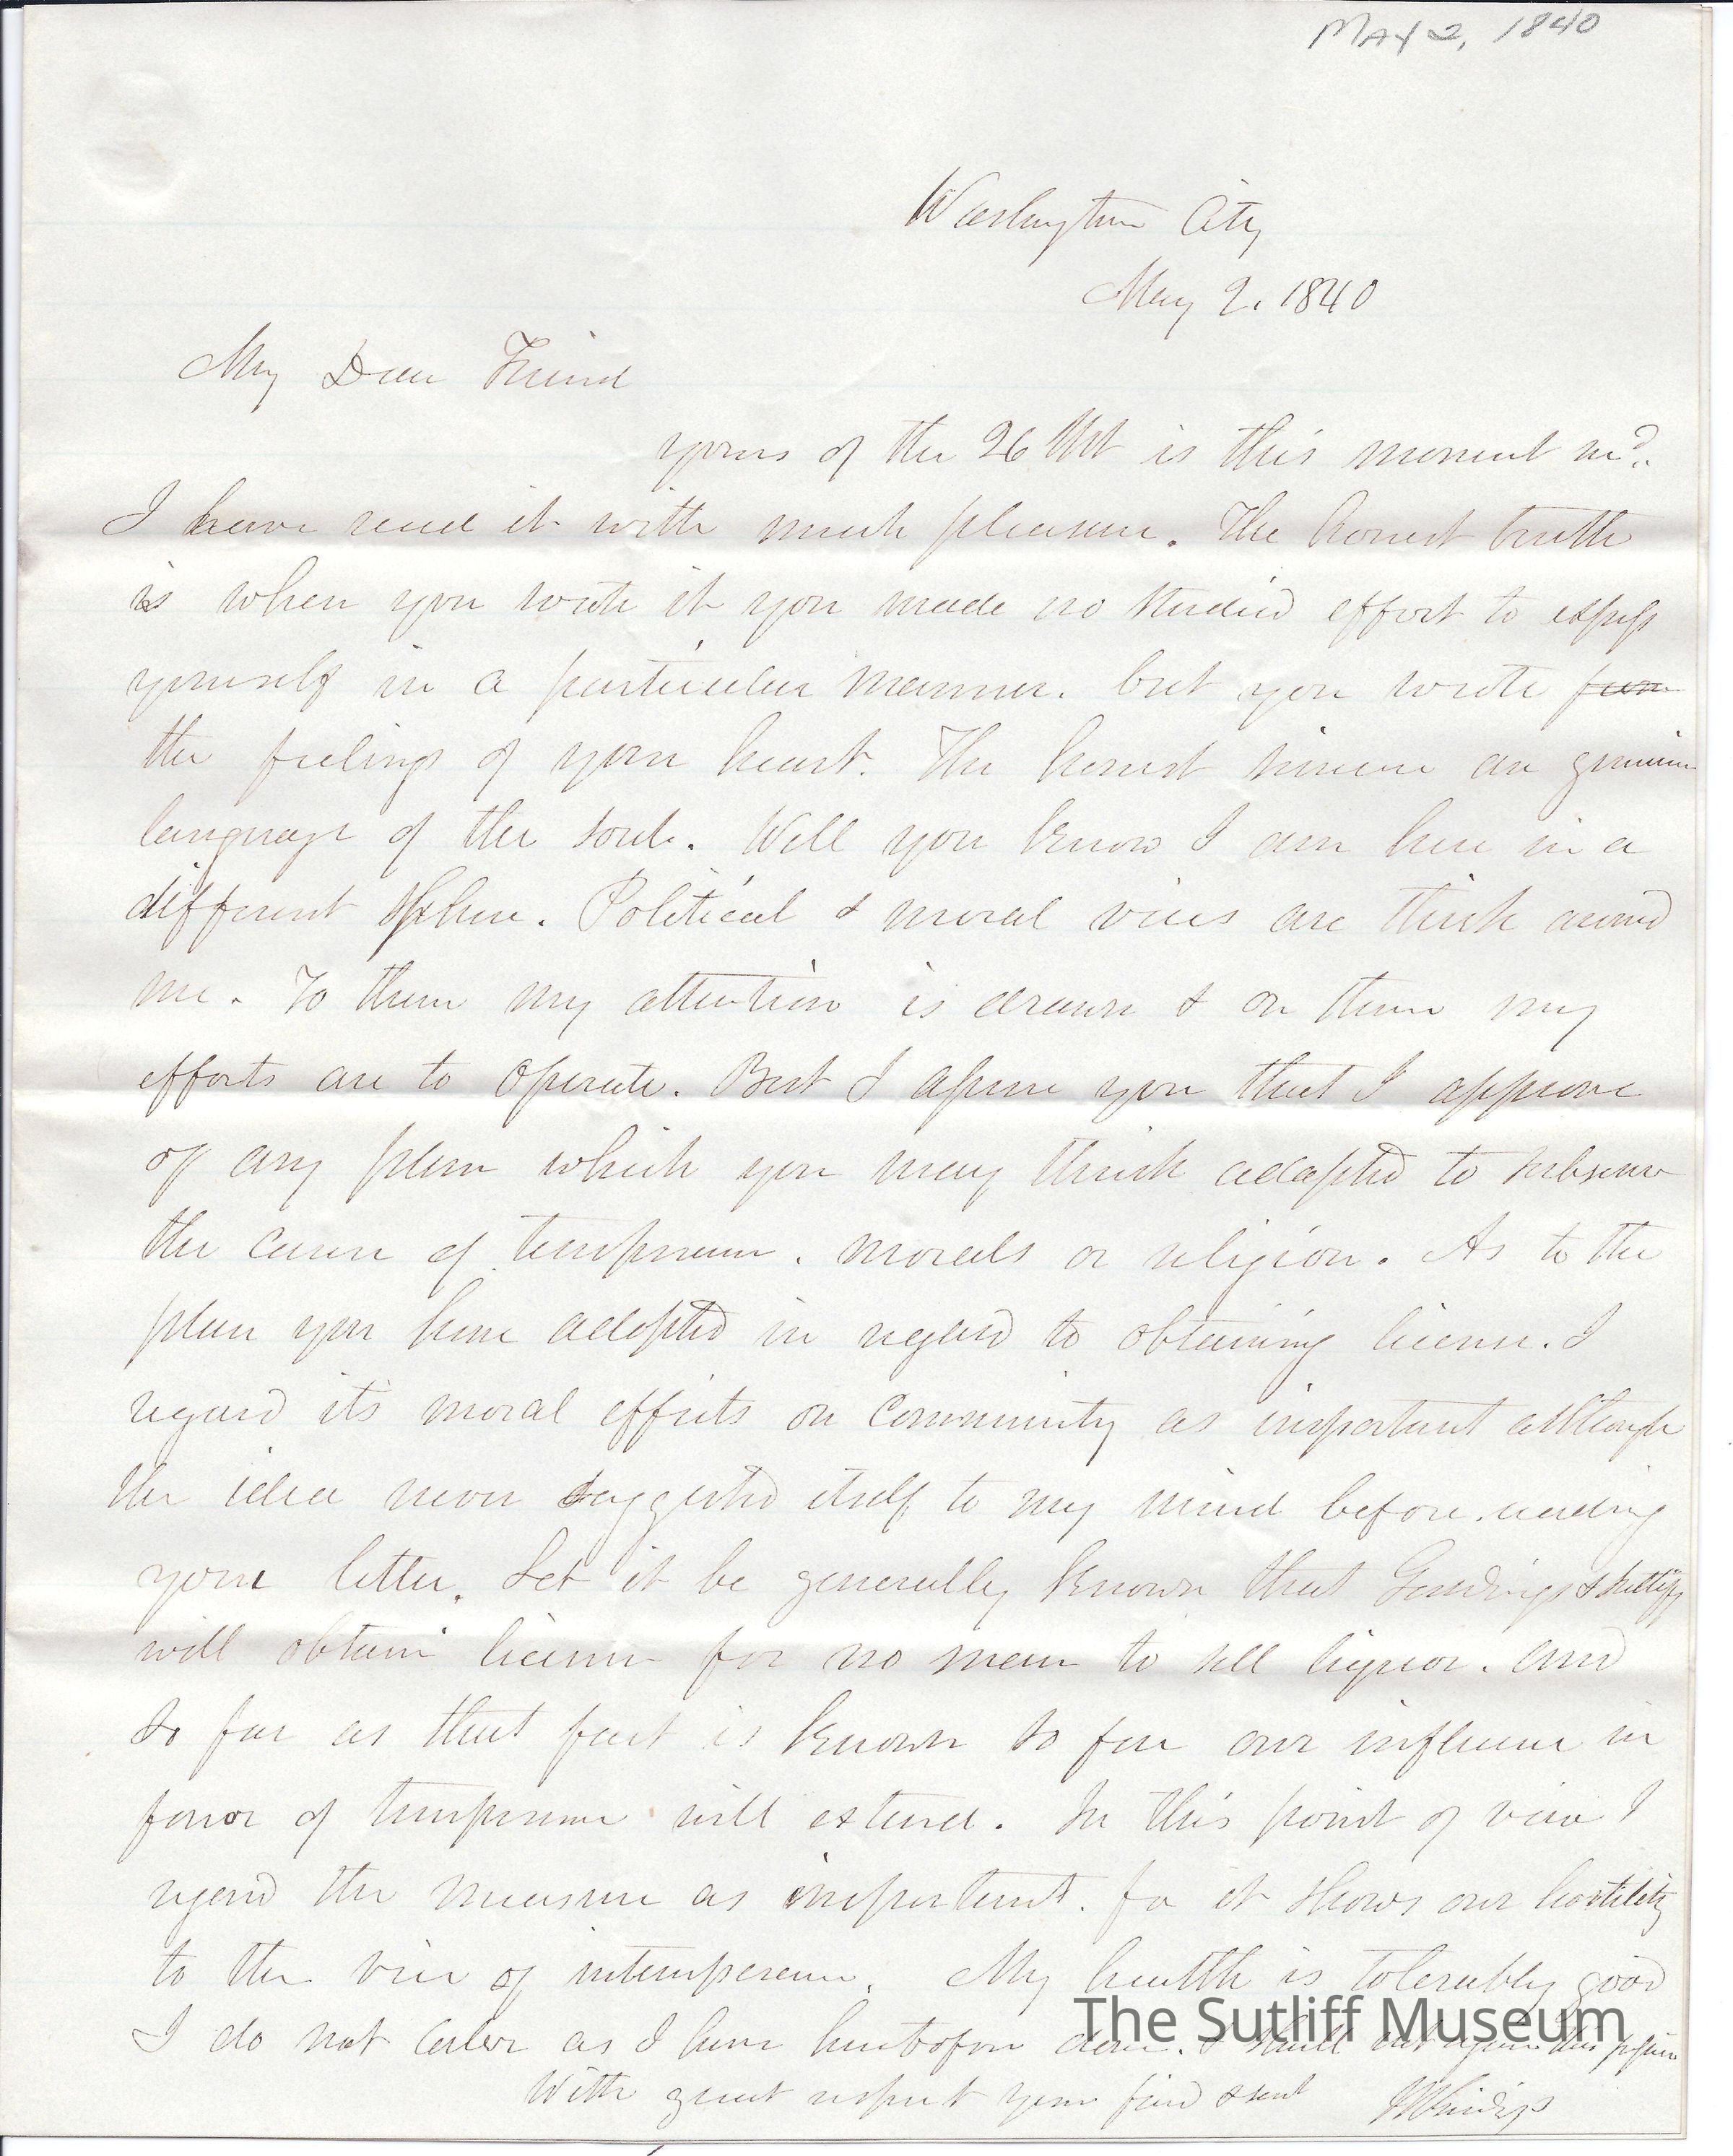 MAY 2, 1840
Washington City
May 2. 1840
My Dear Friend
yours of the 26 Ult is this moment recd.
I have read it with much pleasure. The honest truth
is when you wrote it you made no studied effort to express
yourself in a particular manner. but you wrote from
the feelings of your heart. The honest sincere an genuine
language of the soul. Well you know I am here in a
different sphere. Political & moral vices are thick around
me. To them my attention is drawn & on them my
efforts are to operate. But I assure you that I approve
of any plan which you may think adapted to subserve
the cause of temperance. morals or religion. As to the
plan you have adopted in regard to obtaining license. I
regard it's moral effects on community as important although
the idea never suggested itself to my mind before reading
your letter. Let it be generally known that Giddings & Sutliff
will obtain license for no man to sell liquor. and
so far as that fact is known so far our influence in
favor of temperance will extend. In this point of view I
regard the measure as important. for it shows our hostility
to the vice of intemperance. My health is tolerably good
I do not labor as I have heretofore done. I shall not
With great respect your friend & servt JR Giddings
The Sutliff Museum